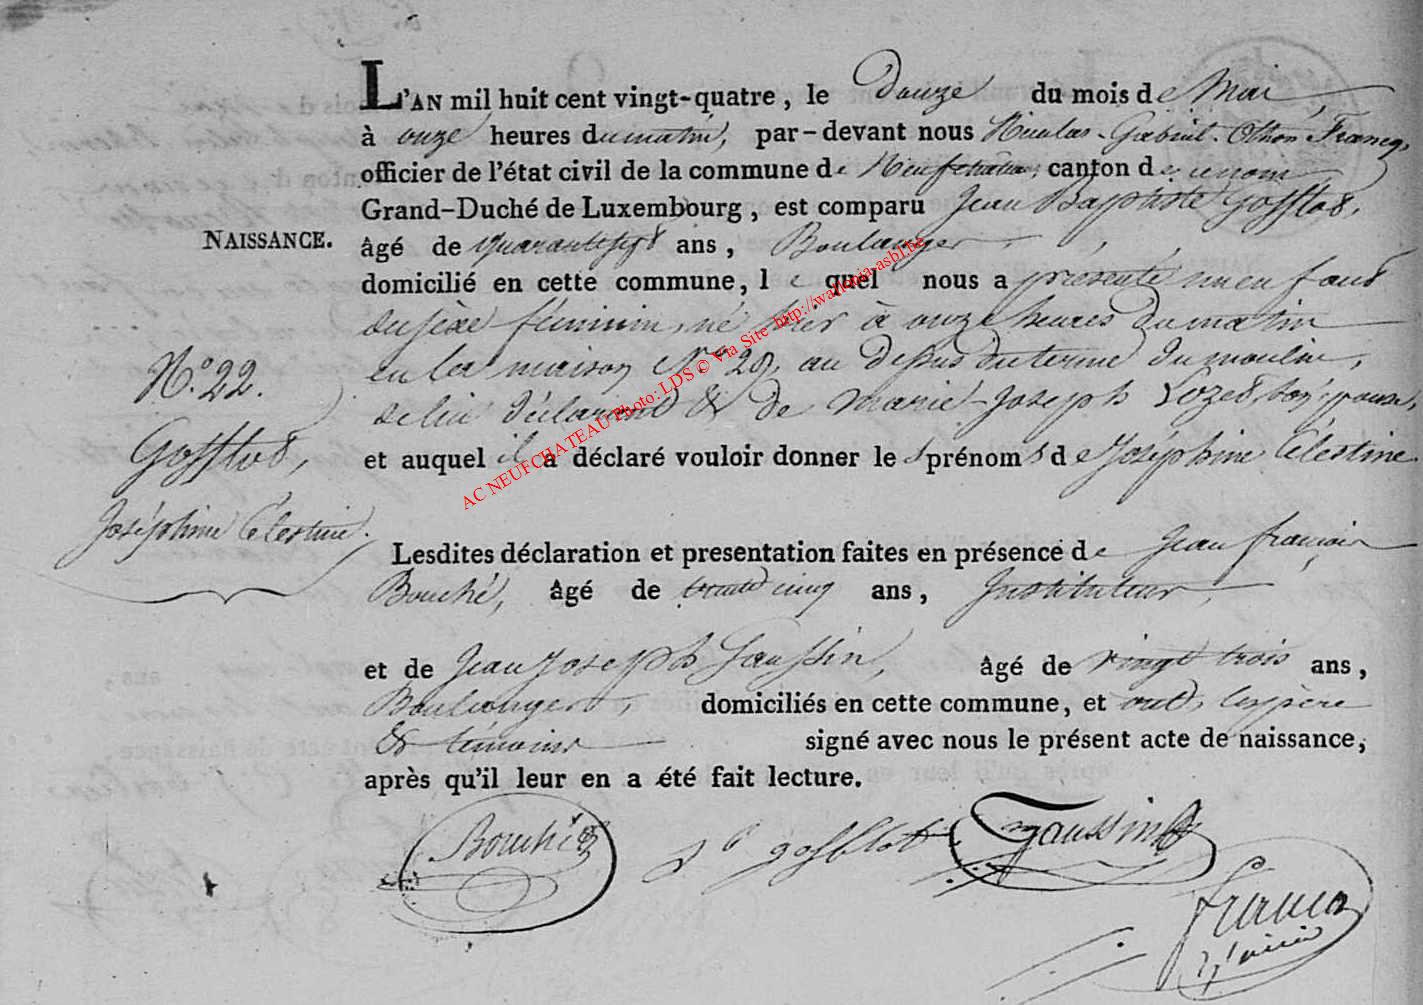 L'AN mil huit cent vingt-quatre, le Douze du mois de Mai,
à onze heures du matin, par-devant nous Nicolas-Gabriel-Othon Francq,
officier de l'état civil de la commune de Neufchâteau, canton de
Grand-Duché de Luxembourg, est comparu Jean Baptiste Gofflot,
NAISSANCE.
âgé de ans, Boulanger,
domicilié en cette commune, lequel nous a présenté un enfant
du sexe féminin, né hier à onze heures du matin
en la maison N.° 29, au dessus du terme du moulin,
de lui déclarant & de Marie-Joseph Lozet, son épouse,
et auquel il a déclaré vouloir donner les prénoms de Joséphine Célestine.
N.° 22.
Gofflot,
Joséphine Célestine.
Lesdites déclaration et presentation faites en présence de Jean françois
Bouché, âgé de trente cinq ans, Instituteur,
et de Jean Joseph Gaussin, âgé de vingt trois ans,
Boulanger, domiciliés en cette commune, et ont, les père
& témoins signé avec nous le présent acte de naissance,
après qu'il leur en a été fait lecture.
Bouché
gofflot
Gaussin
francq
AC NEUFCHATEAU Photo: LDS © Via Site http://wallonia-asbl.be